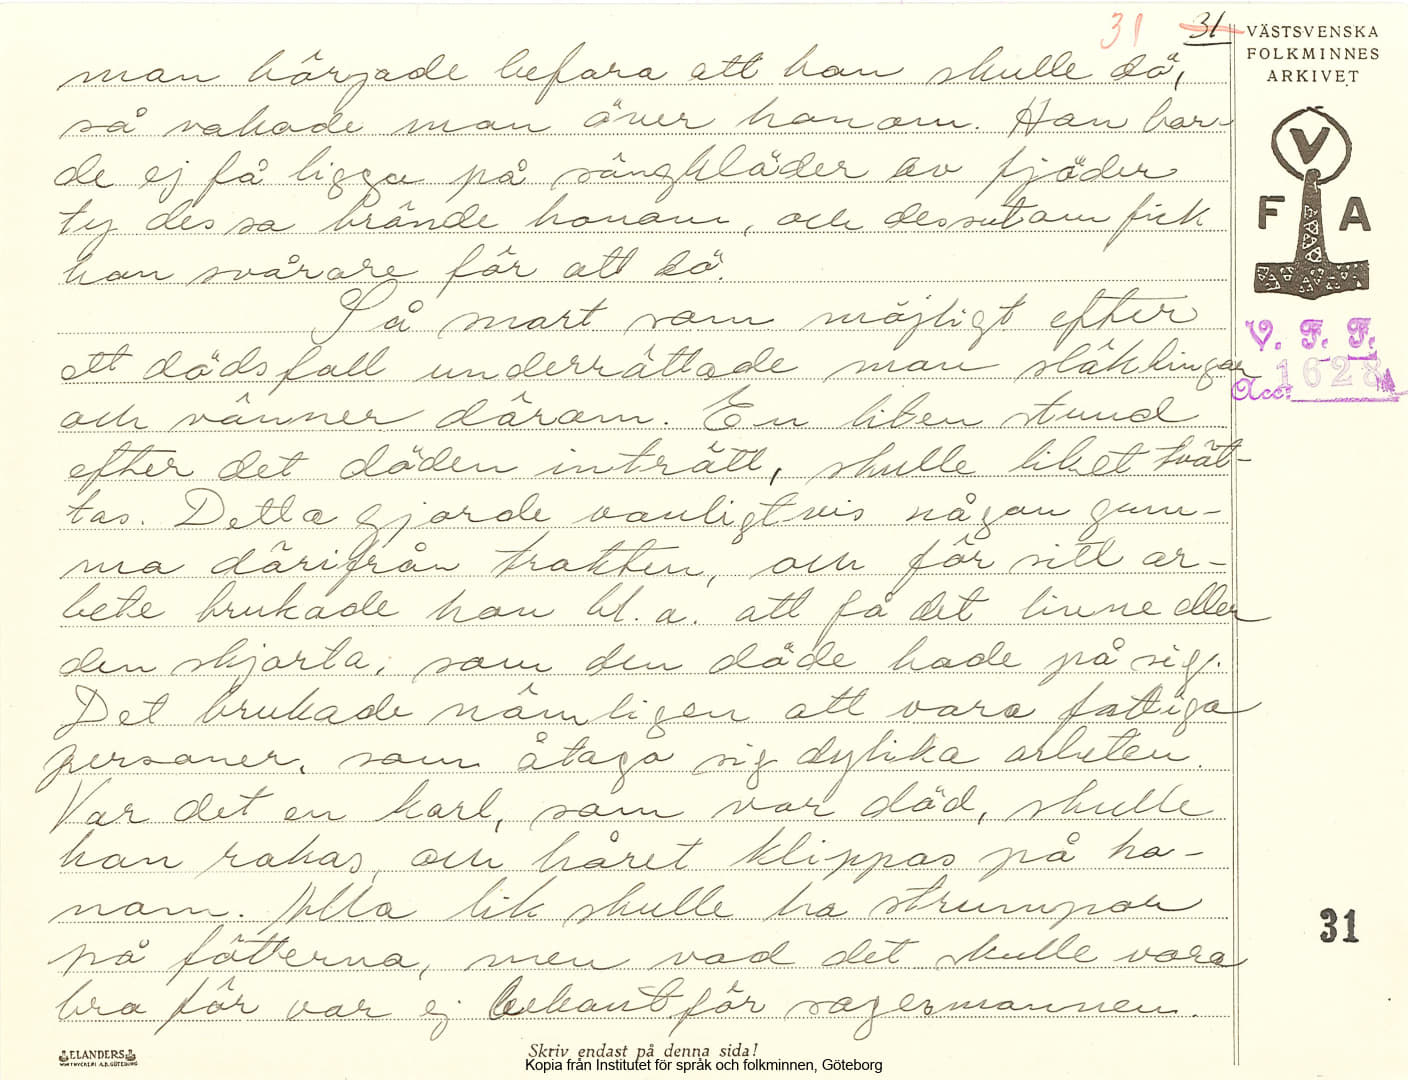 31 31
VÄSTSVENSKA
FOLKMINNES
ARKIVET
V
F A
V. F. F.
1628
Acc:
man började befara att han skulle dö,
så vakade man över honom. Han bor-
de ej få ligga på sängkläder av fjäder
ty dessa brände honom, och dessutom fick
han svårare för att dö.
Så snart som möjligt efter
ett dödsfall underrättade man släktingar
och vänner därom. En liten stund
efter det döden inträtt, skulle liket tvät-
tas. Detta gjorde vanligtvis någon gum-
ma därifrån trakten, och för sitt ar-
bete brukade hon bl. a. att få det linne eller
den skjorta, som den döde hade på sig.
Det brukade nämligen att vara fattiga
personer, som åtaga sig dylika arbeten.
Var det en karl, som var död, skulle
han rakas, och håret klippas på ho-
nom. Alla lik skulle ha strumpor
på fötterna, men vad det skulle vara
bra för var ej bekant för sagesmannen.
31
ELANDERS
BOKTRYCKERI A.B. GÖTEBORG
Skriv endast på denna sida!
Kopia från Institutet för språk och folkminnen, Göteborg